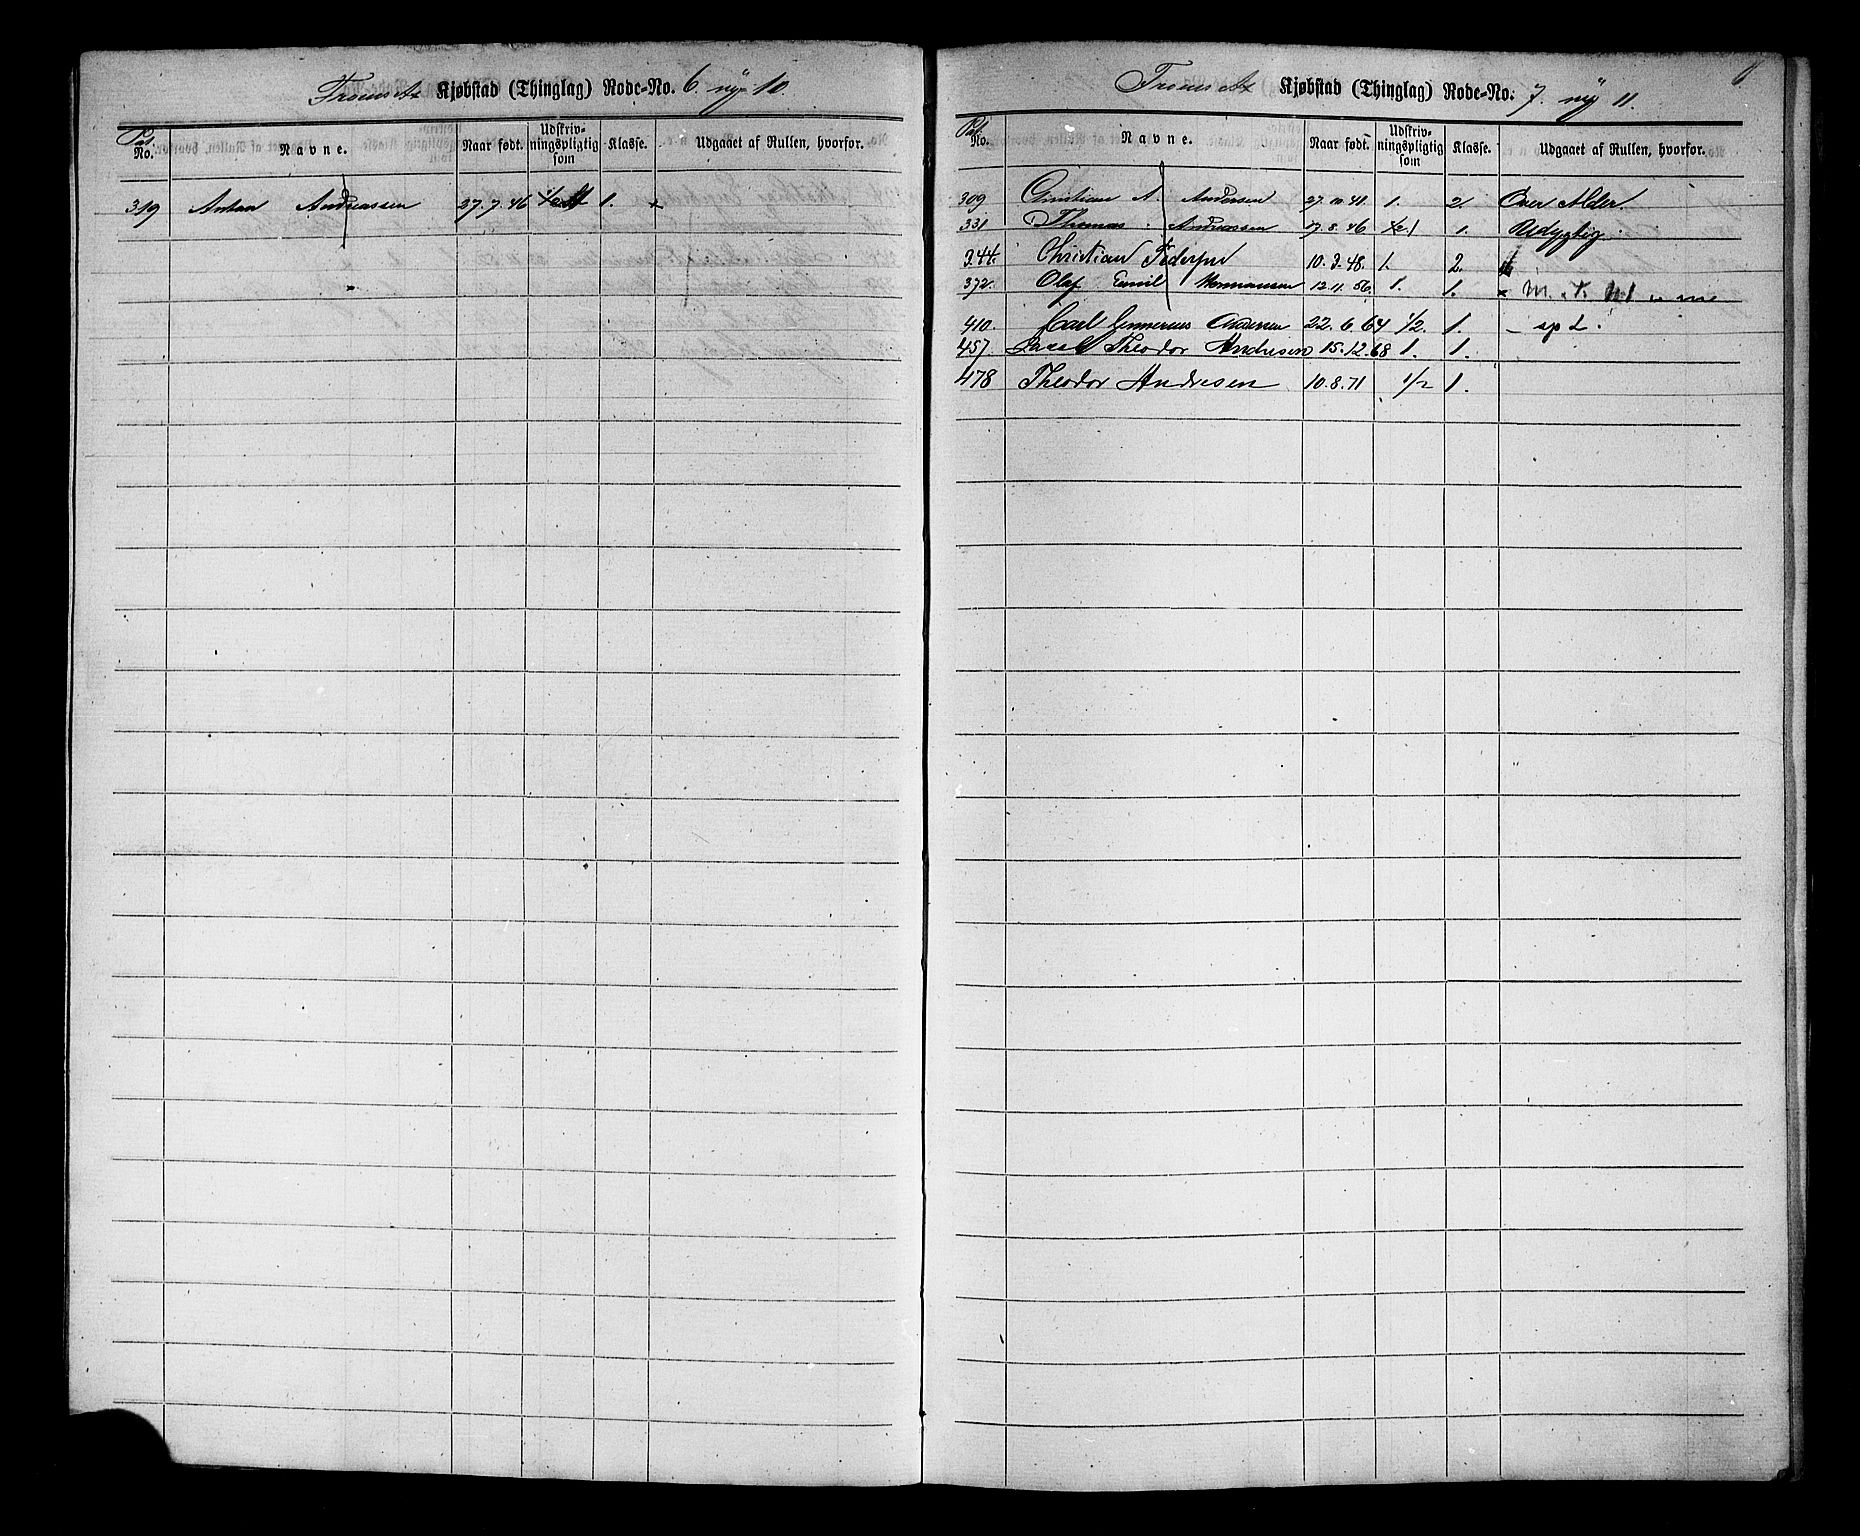 Tromsø Kjøbstad (Thinglag) Rode-No. 6. ny 10.
No. Navne. Naar født. Udskrivningspligtig som Klasse. Udgaaet af Rullen, hvorfor.
319 Anton Andreassen 27.7.46 1.
6
Tromsø Kjøbstad (Thinglag) Rode-No. 7. ny 11.
No. Navne. Naar født. Udskrivningspligtig som Klasse. Udgaaet af Rullen, hvorfor.
309 Christian A. Andersen 27.10.41 1. 2. Over Alder.
331 Thomas Andreassen 17.8.46 1. Udygtig.
344. Christian Pedersen 10.3.48. 1. 2.
372. Olaf Emil Hermansen 12.11.56. 1. 1.
410. Carl Andersen 22.6.64 1/2. 1.
457. Theodor Andresen 15.12.68 1. 1.
478 Theodor Andresen 10.8.71 1/2 1.